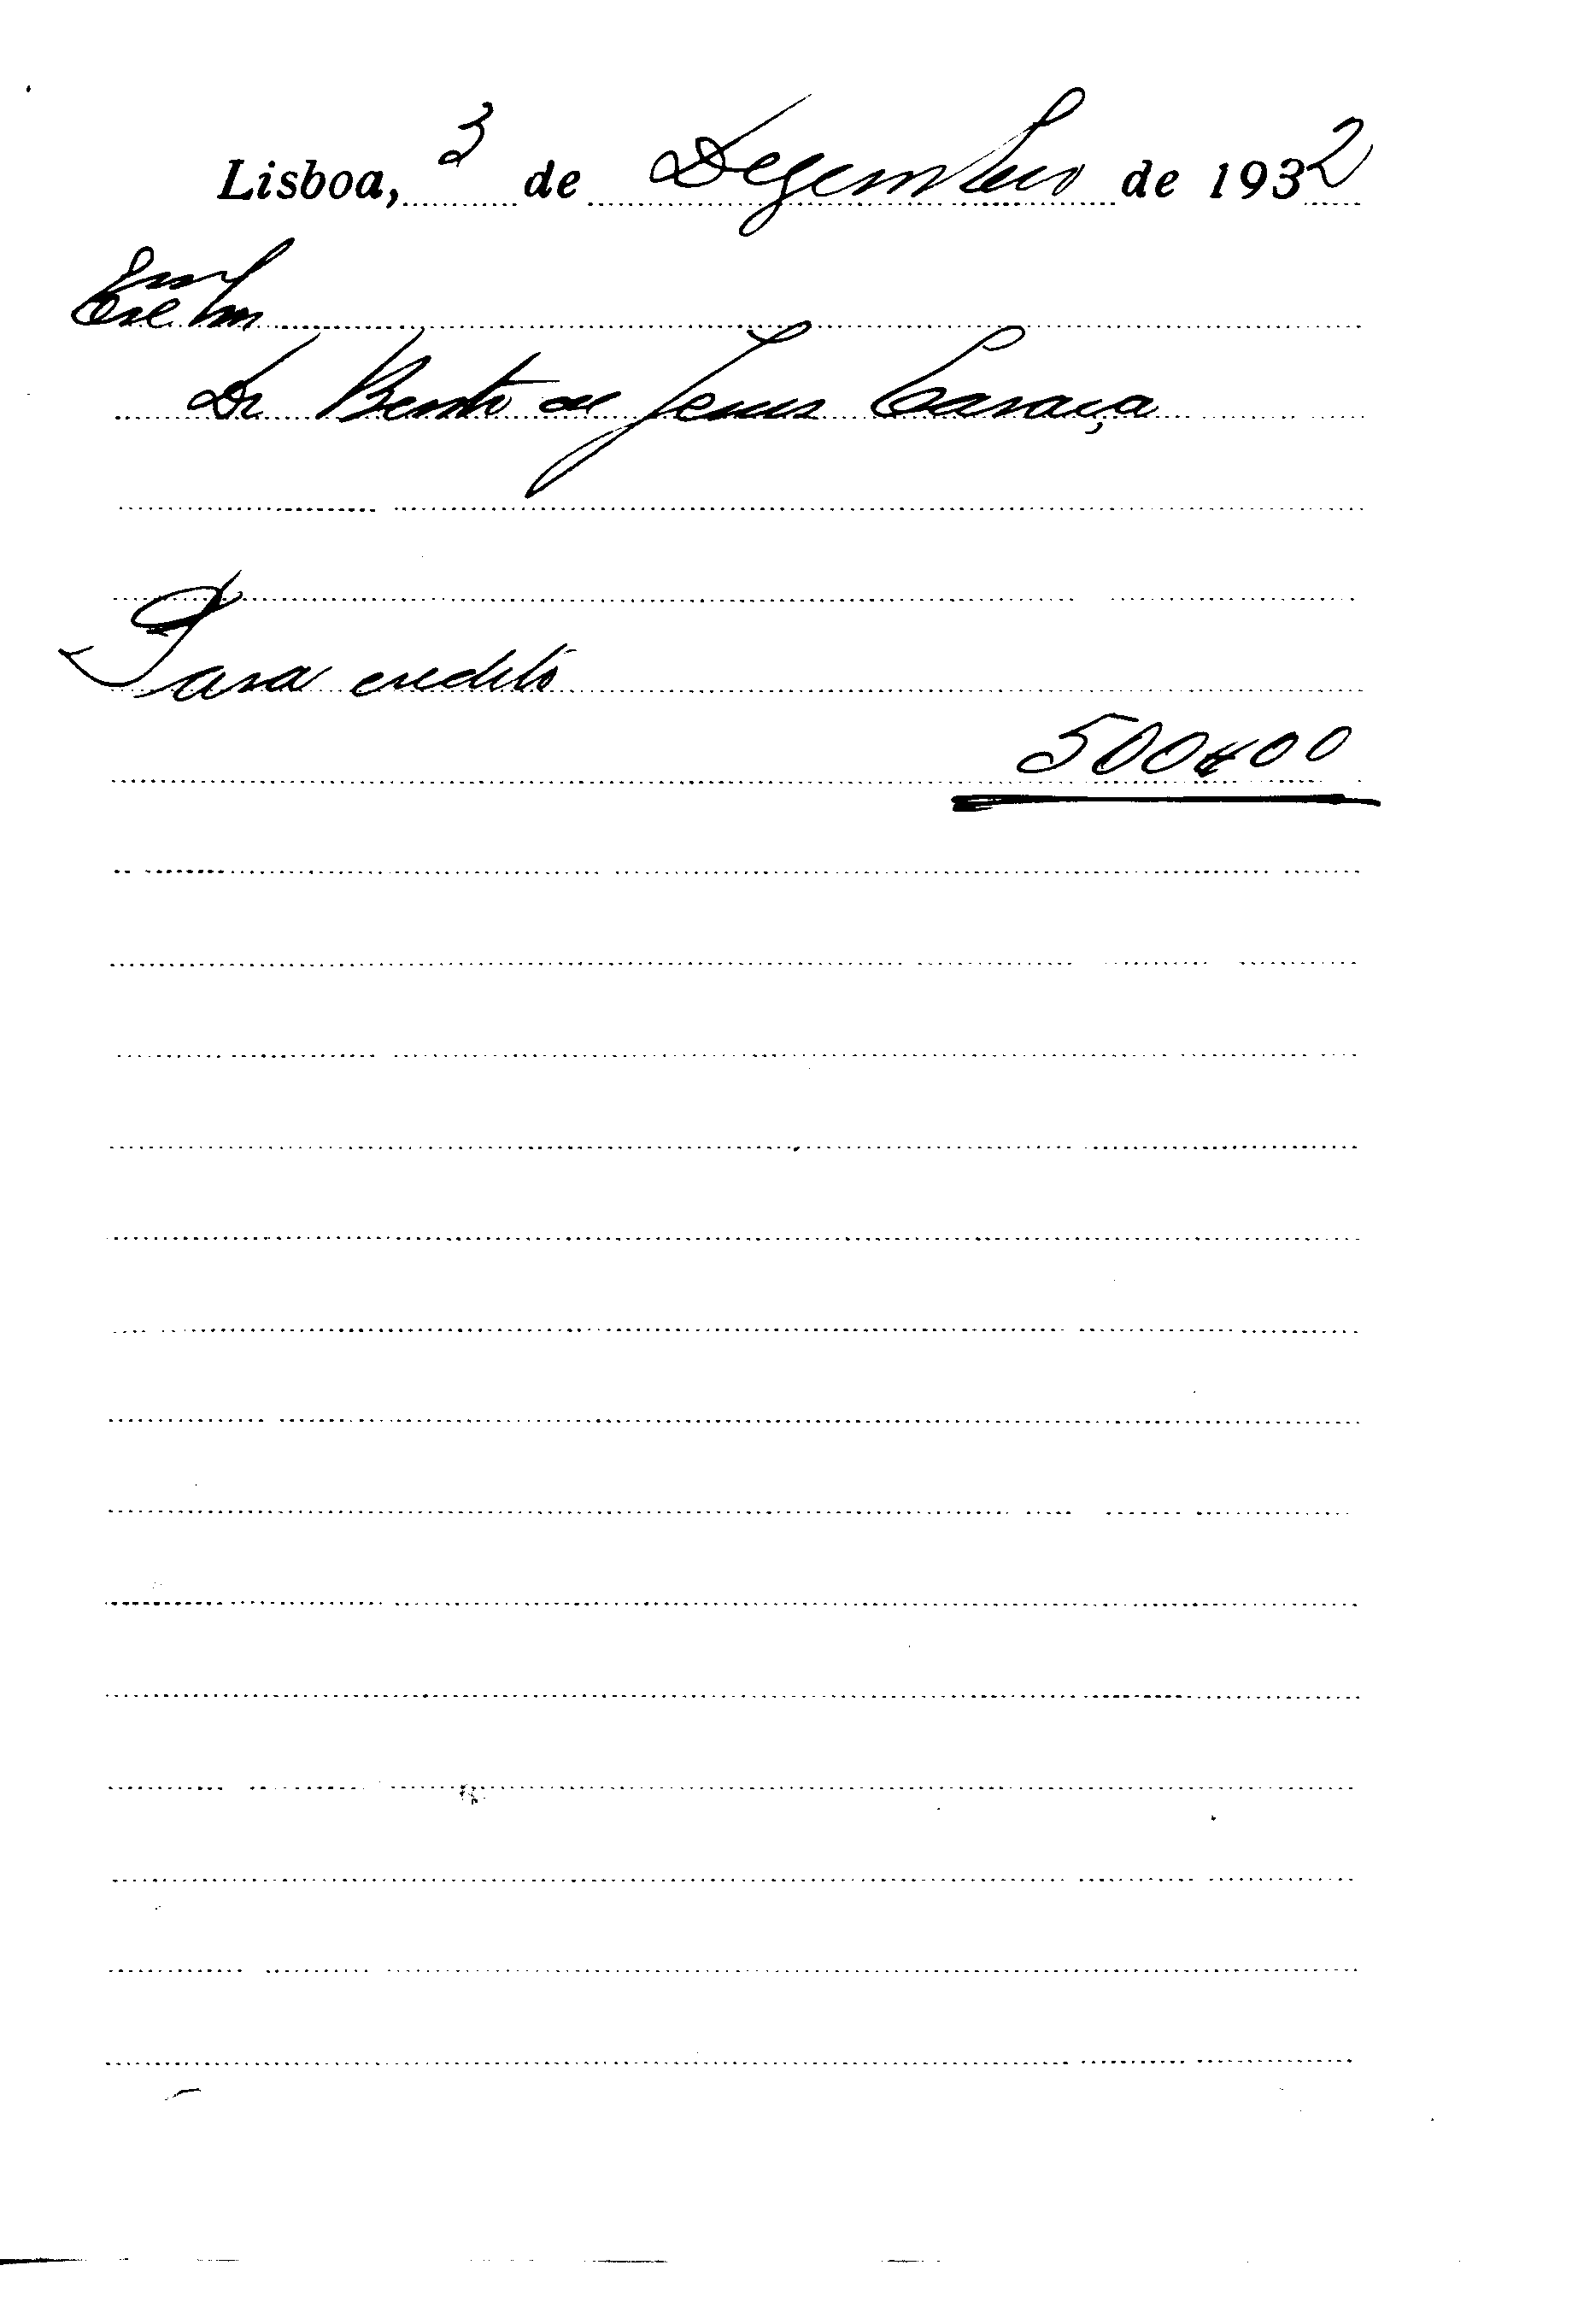 Lisboa, 3 de Dezembro de 1932
Exmo Sr
Dr Bento de Jesus Caraça
Para credito
500$00